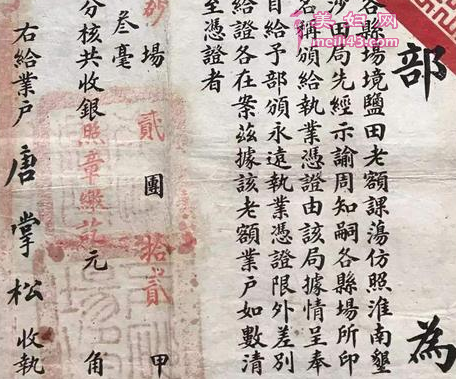 美妇网
meili43.com
部為
各縣場境鹽田老額課蕩仿照淮南墾
沙田局先經示諭周知嗣各縣場所印
名稱頒給執業憑證由該局據情呈奉
自給予部頒永遠執業憑證限外差別
給證各在案茲據該老額業戶如數清
至憑證者
場貳團拾貳甲
叁毫
分核共收銀照章繳訖元角
右給業戶唐掌松收執